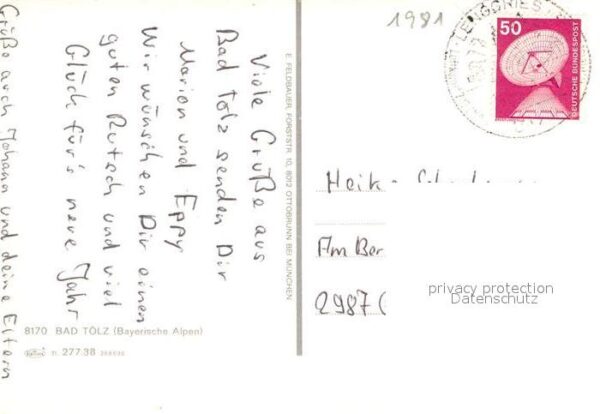 1981
LENGGRIES
50
DEUTSCHE BUNDESPOST
Viele Grüße aus
Bad Tölz senden Dir
Marion und Eppy
Wir wünschen Dir einen
guten Rutsch und viel
Glück für's neue Jahr
Grüße auch Johann und deine Eltern
E. FELDBAUER, FORSTSTR. 10, 8012 OTTOBRUNN BEI MÜNCHEN
Heik
Am Ber
2987(
privacy protection
Datenschutz
8170 BAD TÖLZ (Bayerische Alpen)
n. 277.38